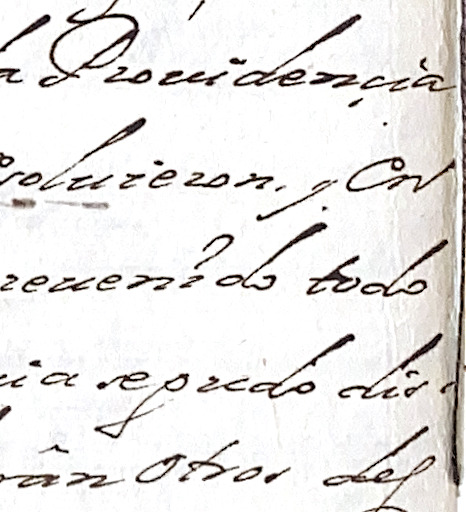 a Providençia
soluieron. y En
reuenido todo
ia se pudo dis
rân otros del